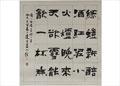 綠螘新醅
酒紅泥小
火爐晚來
天欲雪能
飲一杯無